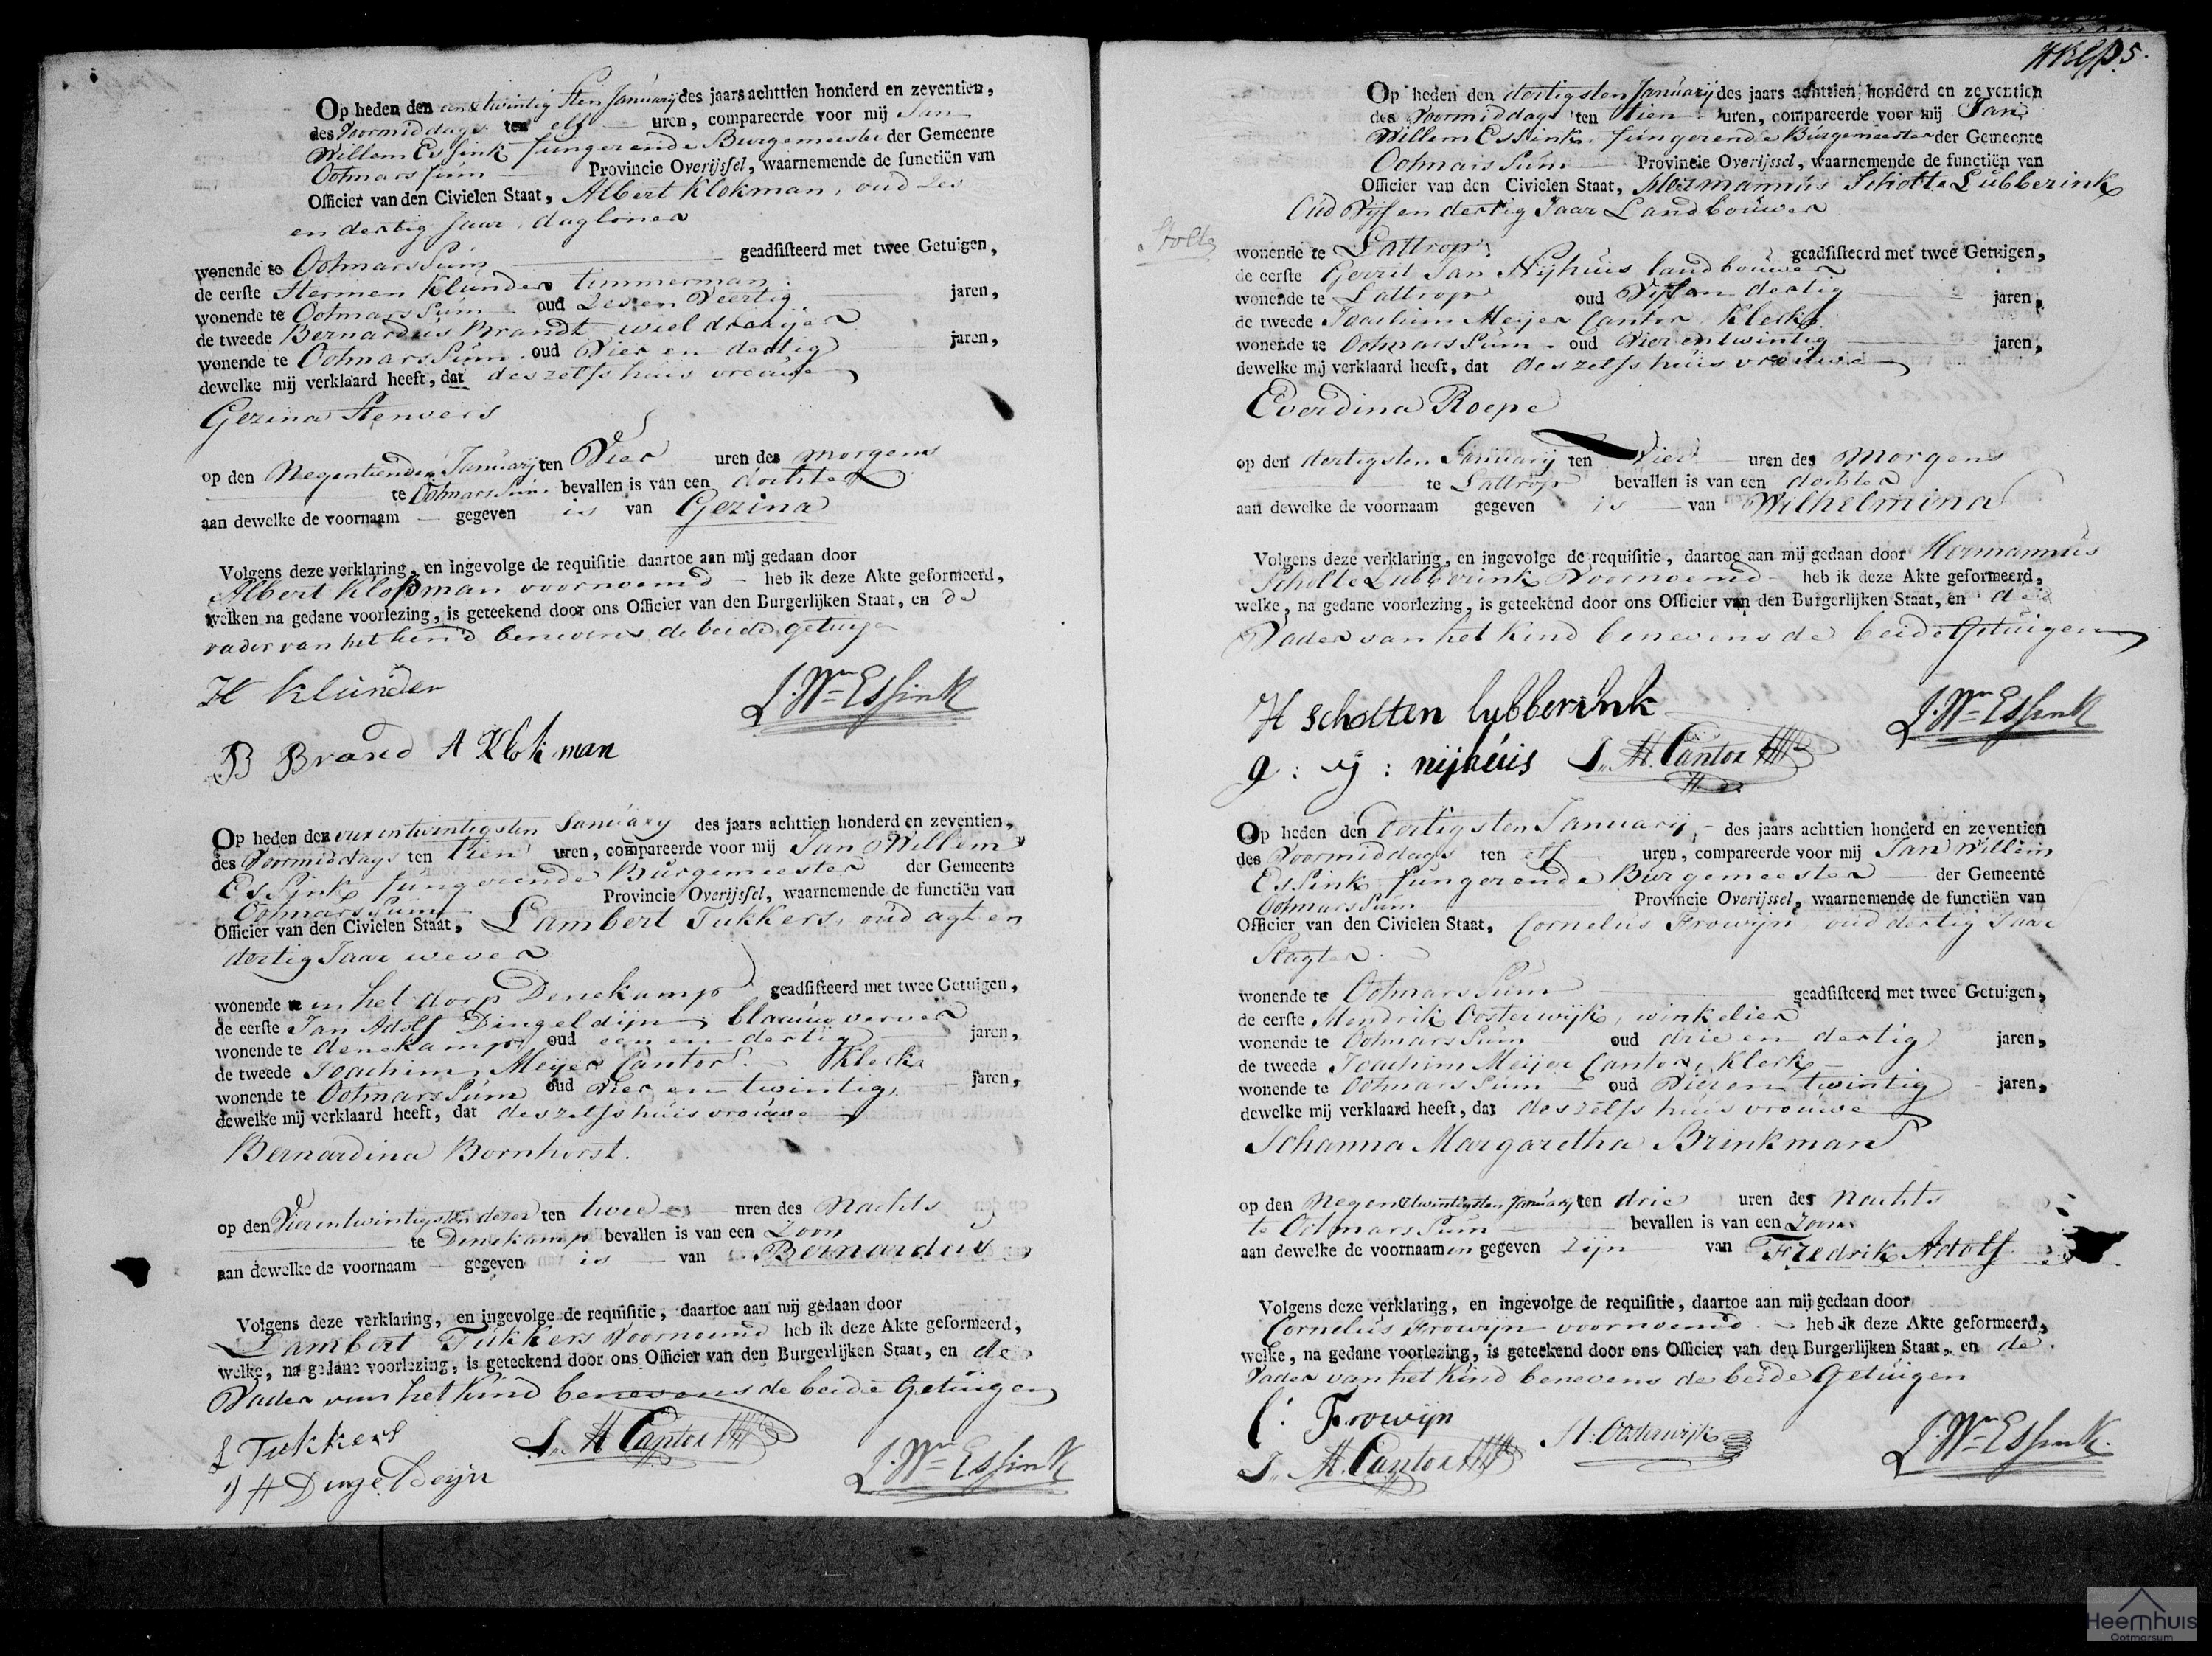 Op heden den een & twintig sten January des jaars achttien honderd en zeventien,
des Voormiddags ten elf uren, compareerde voor mij Jan
Willem Essink fungerende Burgemeester der Gemeente
Ootmarssum Provincie Overijssel, waarnemende de functiën van
Officier van den Civielen Staat, Albert Klokman, oud zes
en dertig Jaar, dagloner
wonende te Ootmarssum geadsisteerd met twee Getuigen,
de eerste Hermen Klunder timmerman
wonende te Ootmarssum oud Zes en Veertig jaren,
de tweede Bernardus Brandt wieldraaijer
wonende te Ootmarssum oud Vier en dertig jaren,
dewelke mij verklaard heeft, dat deszelfs huis vrouwe
Gezina Stenvers
op den Negentienden January ten Vier uren des morgens
te Ootmarssum bevallen is van een dochter
aan dewelke de voornaam gegeven is van Gezina
Volgens deze verklaring, en ingevolge de requisitie daartoe aan mij gedaan door
Albert Klokman voornoemd heb ik deze Akte geformeerd,
welken na gedane voorlezing, is geteekend door ons Officier van den Burgerlijken Staat, en de
vader van het kind benevens de beide getuige
H Klunder
J. Wm Essink
B Brand A Klokman
Op heden den vier en twintigsten January des jaars achttien honderd en zeventien,
des Voormiddags ten tien uren, compareerde voor mij Jan Willem
Essink fungerende Burgemeester der Gemeente
Ootmarssum Provincie Overijssel, waarnemende de functiën van
Officier van den Civielen Staat, Lambert Tukkers, oud agt en
dertig Jaar wever
wonende in het dorp Denekamp geadsisteerd met twee Getuigen,
de eerste Jan Adolf Dingeldijn, blaauwverver
wonende te denekamp oud een en dertig jaren,
de tweede Joachim Meijer Cantor Klerk
wonende te Ootmarssum oud Vier en twintig jaren,
dewelke mij verklaard heeft, dat deszelfs huisvrouwe
Bernardina Bornhorst.
op den Vierentwintigsten dezer ten twee uren des Nachts
te Denekamp bevallen is van een Zoon
aan dewelke de voornaam gegeven is van Bernardus
Volgens deze verklaring, en ingevolge de requisitie, daartoe aan mij gedaan door
Lambert Tukkers Voornoemd heb ik deze Akte geformeerd,
welke, na gedane voorlezing, is geteekend door ons Officier van den Burgerlijken Staat, en de
Vader van het Kind benevens de beide Getuigen
L Tukkers J. M. Cantor
J A Dingeldeijn J. Wm Essink
5.
Op heden den dertigsten January des jaars achttien honderd en zeventien
des Voormiddags ten tien uren, compareerde voor mij Jan
Willem Essink, fungerende Burgemeester der Gemeente
Ootmarssum Provincie Overijssel, waarnemende de functiën van
Officier van den Civielen Staat, Hermannus Scholte Lubberink
Oud Vijf en dertig Jaar Landbouwer
Stolte
wonende te Lattrop geadsisteerd met twee Getuigen,
de eerste Gerrit Jan Nijhuis landbouwer
wonende te Lattrop oud Vijf en dertig jaren,
de tweede Joachim Meijer Cantor Klerk
wonende te Ootmarssum oud Vier en twintig jaren,
dewelke mij verklaard heeft, dat deszelfs huis vrouwe
Everdina Roepe
op den dertigsten January ten Vier uren des Morgens
te Lattrop bevallen is van een dochter
aan dewelke de voornaam gegeven is van Wilhelmina
Volgens deze verklaring, en ingevolge de requisitie, daartoe aan mij gedaan door Hermannus
Scholte Lubberink Voornoemd heb ik deze Akte geformeerd,
welke, na gedane voorlezing, is geteekend door ons Officier van den Burgerlijken Staat, en de
Vader van het Kind benevens de beide Getuigen
H scholten lubberink J. Wm Essink
g: ij: nijhuis J. M. Cantor
Op heden den dertigsten January des jaars achttien honderd en zeventien
des Voormiddags ten elf uren, compareerde voor mij Jan Willem
Essink fungerende Burgemeester der Gemeente
Ootmarssum Provincie Overijssel, waarnemende de functiën van
Officier van den Civielen Staat, Cornelus Frowijn oud dertig Jaar
Slagter
wonende te Ootmarssum geadsisteerd met twee Getuigen,
de eerste Hendrik Oosterwijk, winkelier
wonende te Ootmarssum oud drie en dertig jaren,
de tweede Joachim Meijer Cantor, Klerk
wonende te Ootmarssum oud Vier en twintig jaren,
dewelke mij verklaard heeft, dat deszelfs huis vrouwe
Johanna Margaretha Brinkman
op den Negen & twintigsten January ten drie uren des Nachts
te Ootmarssum bevallen is van een Zoon
aan dewelke de voornaamen gegeven zijn van Fredrik Adolf
Volgens deze verklaring, en ingevolge de requisitie, daartoe aan mij gedaan door
Cornelus Frowijn voornoemd heb ik deze Akte geformeerd,
welke, na gedane voorlezing, is geteekend door ons Officier van den Burgerlijken Staat, en de
Vader van het Kind benevens de beide Getuigen
C: Frowijn
J. M. Cantor H. Oosterwijk J. Wm Essink
Heemhuis
Ootmarsum